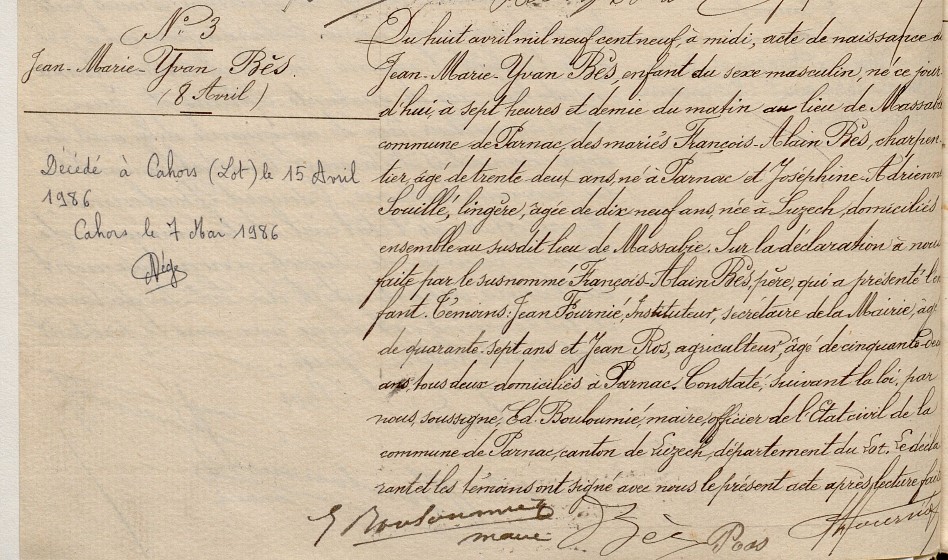 N° 3
Jean-Marie-Yvan Bès.
(8 Avril)
Décédé à Cahors (Lot) le 15 Avril
1986
Cahors le 7 Mai 1986
Du huit avril mil neuf cent neuf, à midi, acte de naissance de
Jean-Marie-Yvan Bès, enfant du sexe masculin, né ce jour
d'hui, à sept heures et demie du matin au lieu de Massabie
commune de Parnac, des mariés François-Alain Bès, charpen-
tier, âgé de trente deux ans, né à Parnac et Joséphine-Adrienne
Souillé, lingère, âgée de dix neuf ans, née à Luzech, domiciliés
ensemble au susdit lieu de Massabie. Sur la déclaration à nous
faite par le susnommé François-Alain Bès, père, qui a présenté l'en
fant. Témoins: Jean Fournié, Instituteur, secrétaire de la Mairie, âgé
de quarante-sept ans et Jean Ros, agriculteur, âgé de cinquante-deux
ans, tous deux domiciliés à Parnac. Constaté, suivant la loi, par
nous, soussigné, Ed. Bouloumié, maire, officier de l'Etat civil de la
commune de Parnac, canton de Luzech, département du Lot. Le décla
rant et les témoins ont signé avec nous le présent acte après lecture faite
E Bouloumié
maire
Bès
Ros
Fournié